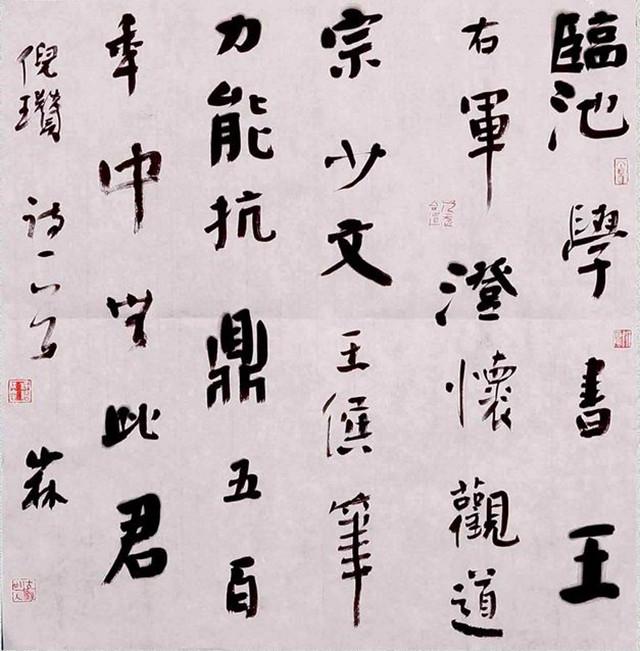 臨池學書王
右軍澄懷觀道
宗少文王筆
力能抗鼎五百
年中無此君
倪瓚詩一